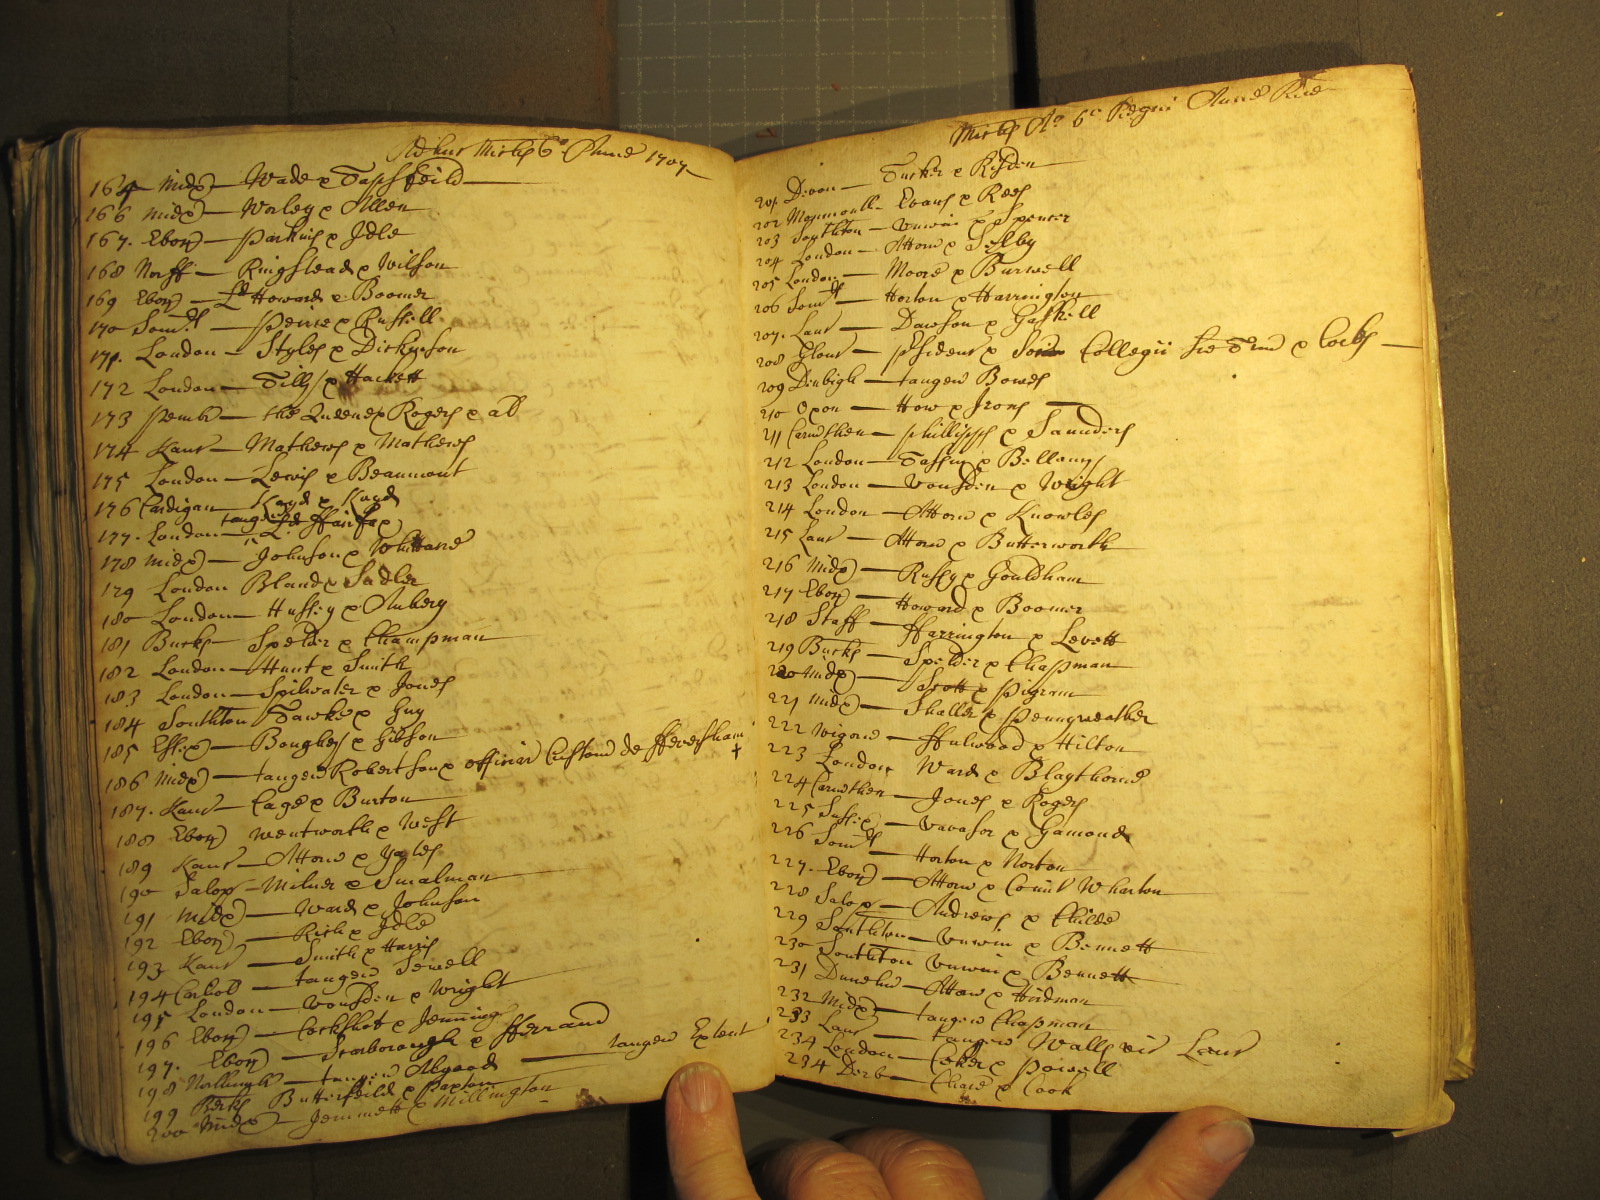 Adhuc Michis 6o Anne 1707
164 Midx — Wade p Tapsfeild
166 Midx — Worley p Allen
167. Ebor — Parkins p Idle
168 Norff — Ringstead p Wilson
169 Ebor — Ld Howard p Boomer
170 Somsdt — Peirce p Russell
171. London — Styles p Dickenson
172 London — Tilly p Hackett
173 Pemb — the Queene p Rogers p al
174 Kanc — Mathews p Mathews
175 London — Lewis p Beaumont
176 Cardigan Loyd p Loyd
177. London — tangen Ld ffairfax
178 Midx — Johnson p
179 London Bland p Sadler
180 London — Hussey p Aubery
181 Bucks — Spelder p Champman
182 London — Hunt p Smith
183 London — Spilwater p Jones
184 Southton Fawke p Guy
185 Essex — Boughey p Gibson
186 Midx — tangen Robertson p officiar Custom de ffeversham +
187. Kanc — Cage p Burton
188 Ebor Wentworth p West
189 Kanc — Attorn p Yates
190 Salop — Milner p Smalman
191 Midx — Ward p Johnson
192 Ebor — Rich p Idle
193 Kanc — Smith p Harris
194 Carliol — tangen Sewell
195 London — Vousden p Wright
196 Ebor — Cockshot p Jennings
197. Ebor — Scarborough p fferrand
198 — tangen Abgood — tangen Extent
199 Berks Butterfeild p Paxton
200 Midx — Jemmett p Millington
Michis Ao 6o Regni Anne Rne
201 Devon — Tucker p Risden
202 Monmouth — Evans p Rees
203 Southton — Unwin p Spencer
204 London — Attorn p Selby
205 London — Moore p Burwell
206 Somsdt — Horton p Harrington
207. Lanc — Dawson p Gaskell
208 Glouc — Psident p Soc Collegii See Trin p Cocks —
209 Dinbigh — tangen Bowes
210 Oxon — How p Irons
211 Carmthen — Phillipps p Saunders
212 London — p Bellamy
213 London — Vousden p Wright
214 London — Attorn p Knowles
215 Lanc — Attorn p Butterworth
216 Midx — Russy p Gouldham
217 Ebor — Howard p Boomer
218 Staff — ffarrington p Levett
219 Bucks — Spelder p Chapman
220 Midx — Scott p Pigram
221 Midx — Shaller p Pennyweather
222 Wigorn — ffulwood p Hilton
223 London Ward p Blaythorne
224 Carmthen — Jones p Rogers
225 Sussex — Vavasor p Gamond
226 Somsdt — Horton p Norton
227. Ebor — Attorn p Comit Wharton
228 Salop — Andrews p Childe
229 Southton — Unwin p Bennett
230 Southton Unwin p Bennett
231 Dunelm — Attorn p Hirdman
232 Midx — tangen Chapman
233 Lanc — tangen Walls vic Lanc
234 London — Coker p Powell
234 Derb — Chare p Cook